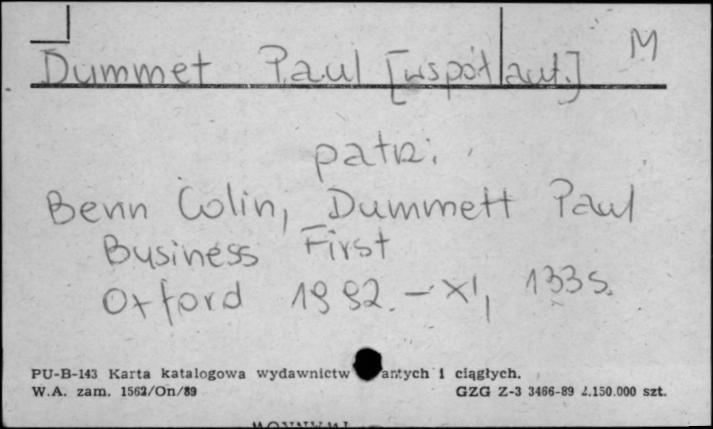 M
Dummet Paul [współaut.]
patrz:
Benn Colin, Dummett Paul
Business First
Oxford 1992. - XI, 133 s.
PU-B-143 Karta katalogowa wydawnictw antych i ciągłych.
W.A. zam. 1562/On/89 GZG Z-3 3466-89 2.150.000 szt.